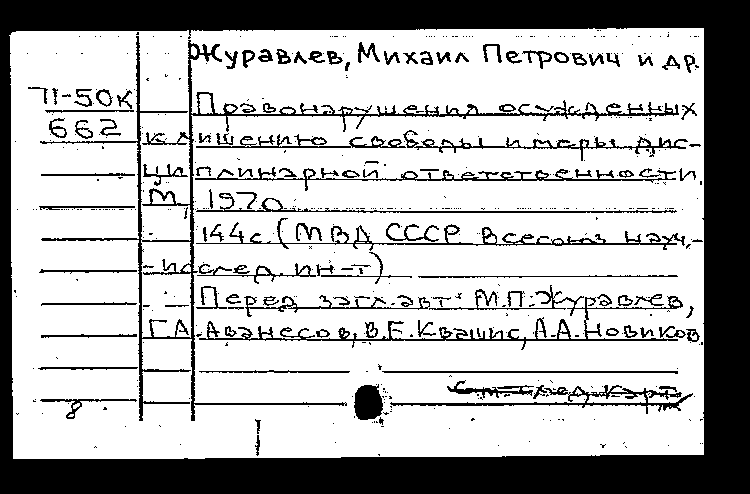 Журавлев, Михаил Петрович и др.
71-50к
662
Правонарушения осужденных
к лишению свободы и меры дис-
циплинарной ответственности.
М, 1970
144с. (МВД СССР. Всесоюз науч.-
-исслед. ин-т)
Перед загл. авт: М.П. Журавлев,
Г.А. Аванесов, В.Е. Квашис, А.А. Новиков.
См. след. карт.
8